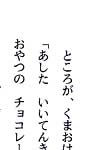 ところが、くまおは
「あした いいてんき
おやつの チョコレー